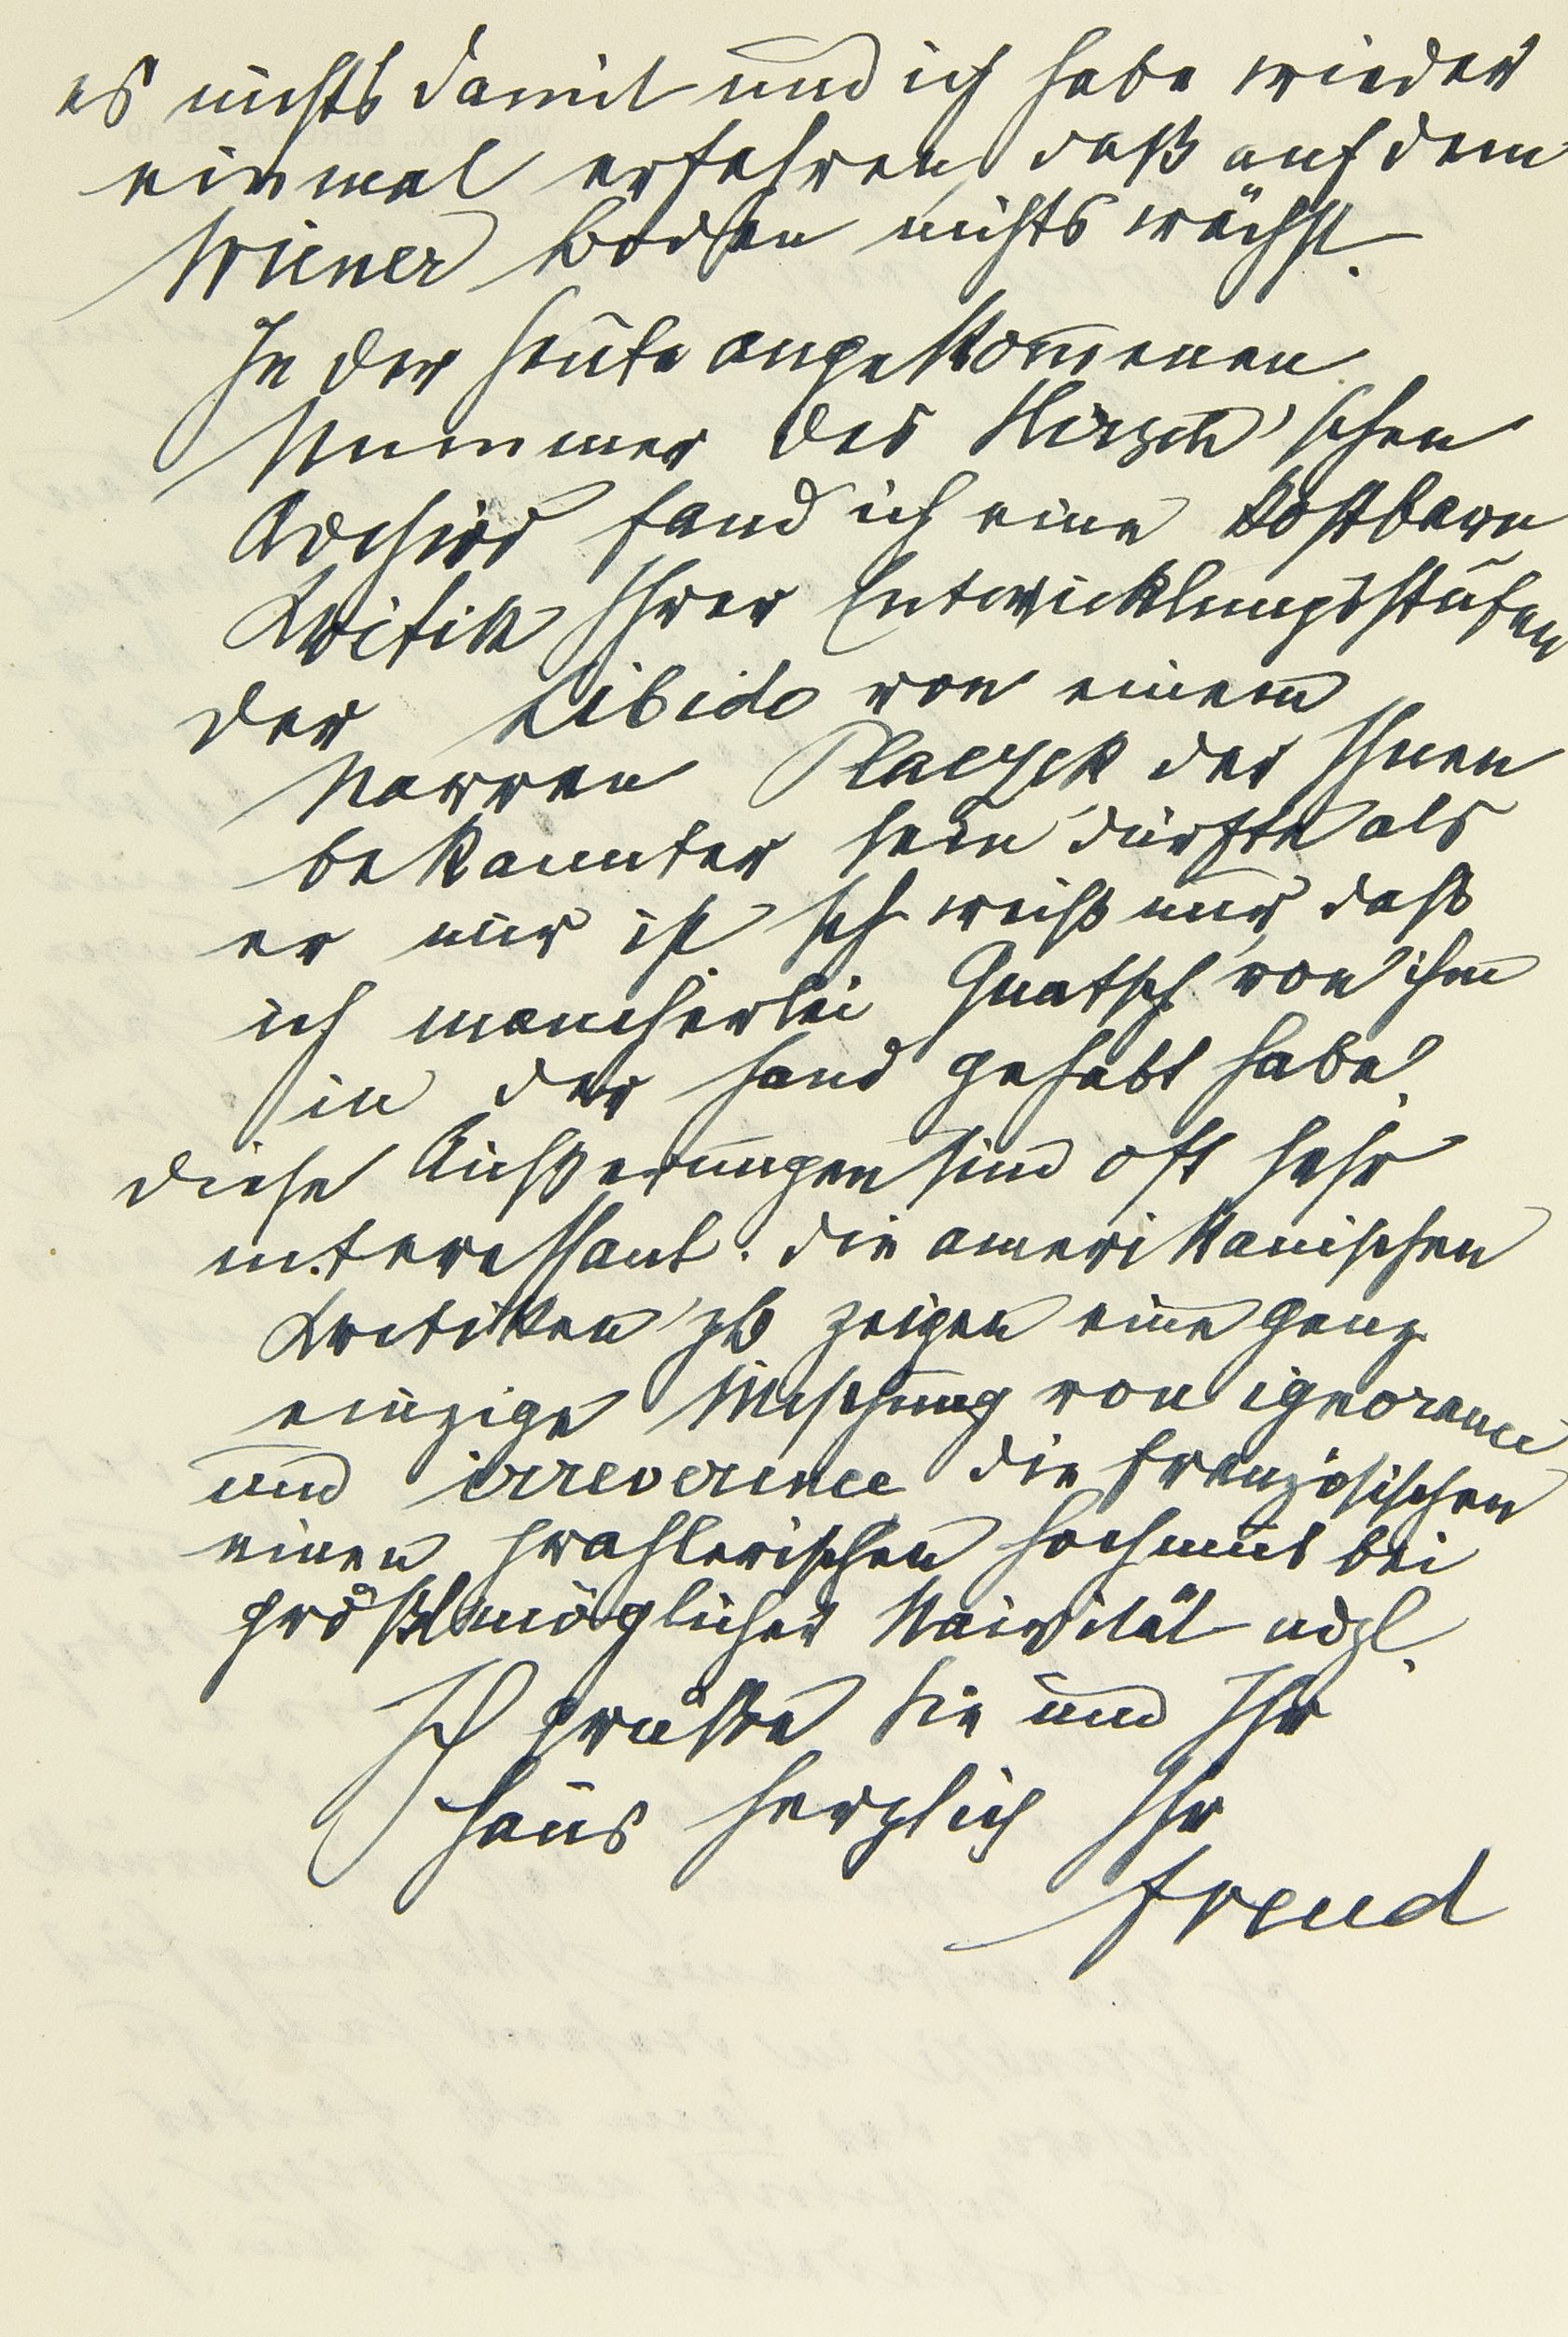 es nichts damit und ich habe wieder
einmal erfahren, daß auf dem
Wiener Boden nichts wächst.
In der heute angekommenen
Nummer des Hirsch'schen
Archivs fand ich eine kostbare
Kritik Ihrer Entwicklungsstufen
der Libido von einem
Narren Placzek der Ihnen
bekannter sein dürfte als
er mir ist. Ich weiß nur, daß
ich mancherlei Quatsch von ihm
in der Hand gehabt habe.
Diese Äußerungen sind oft sehr
interessant. Die amerikanischen
Kritiken zb zeigen eine ganz
einzige Mischung von ignorance
und irreverence die französischen
einen prahlerischen Hochmut bei
größtmöglicher Naivität udgl.
Ich grüße Sie und Ihr
Haus herzlich Ihr
Freud